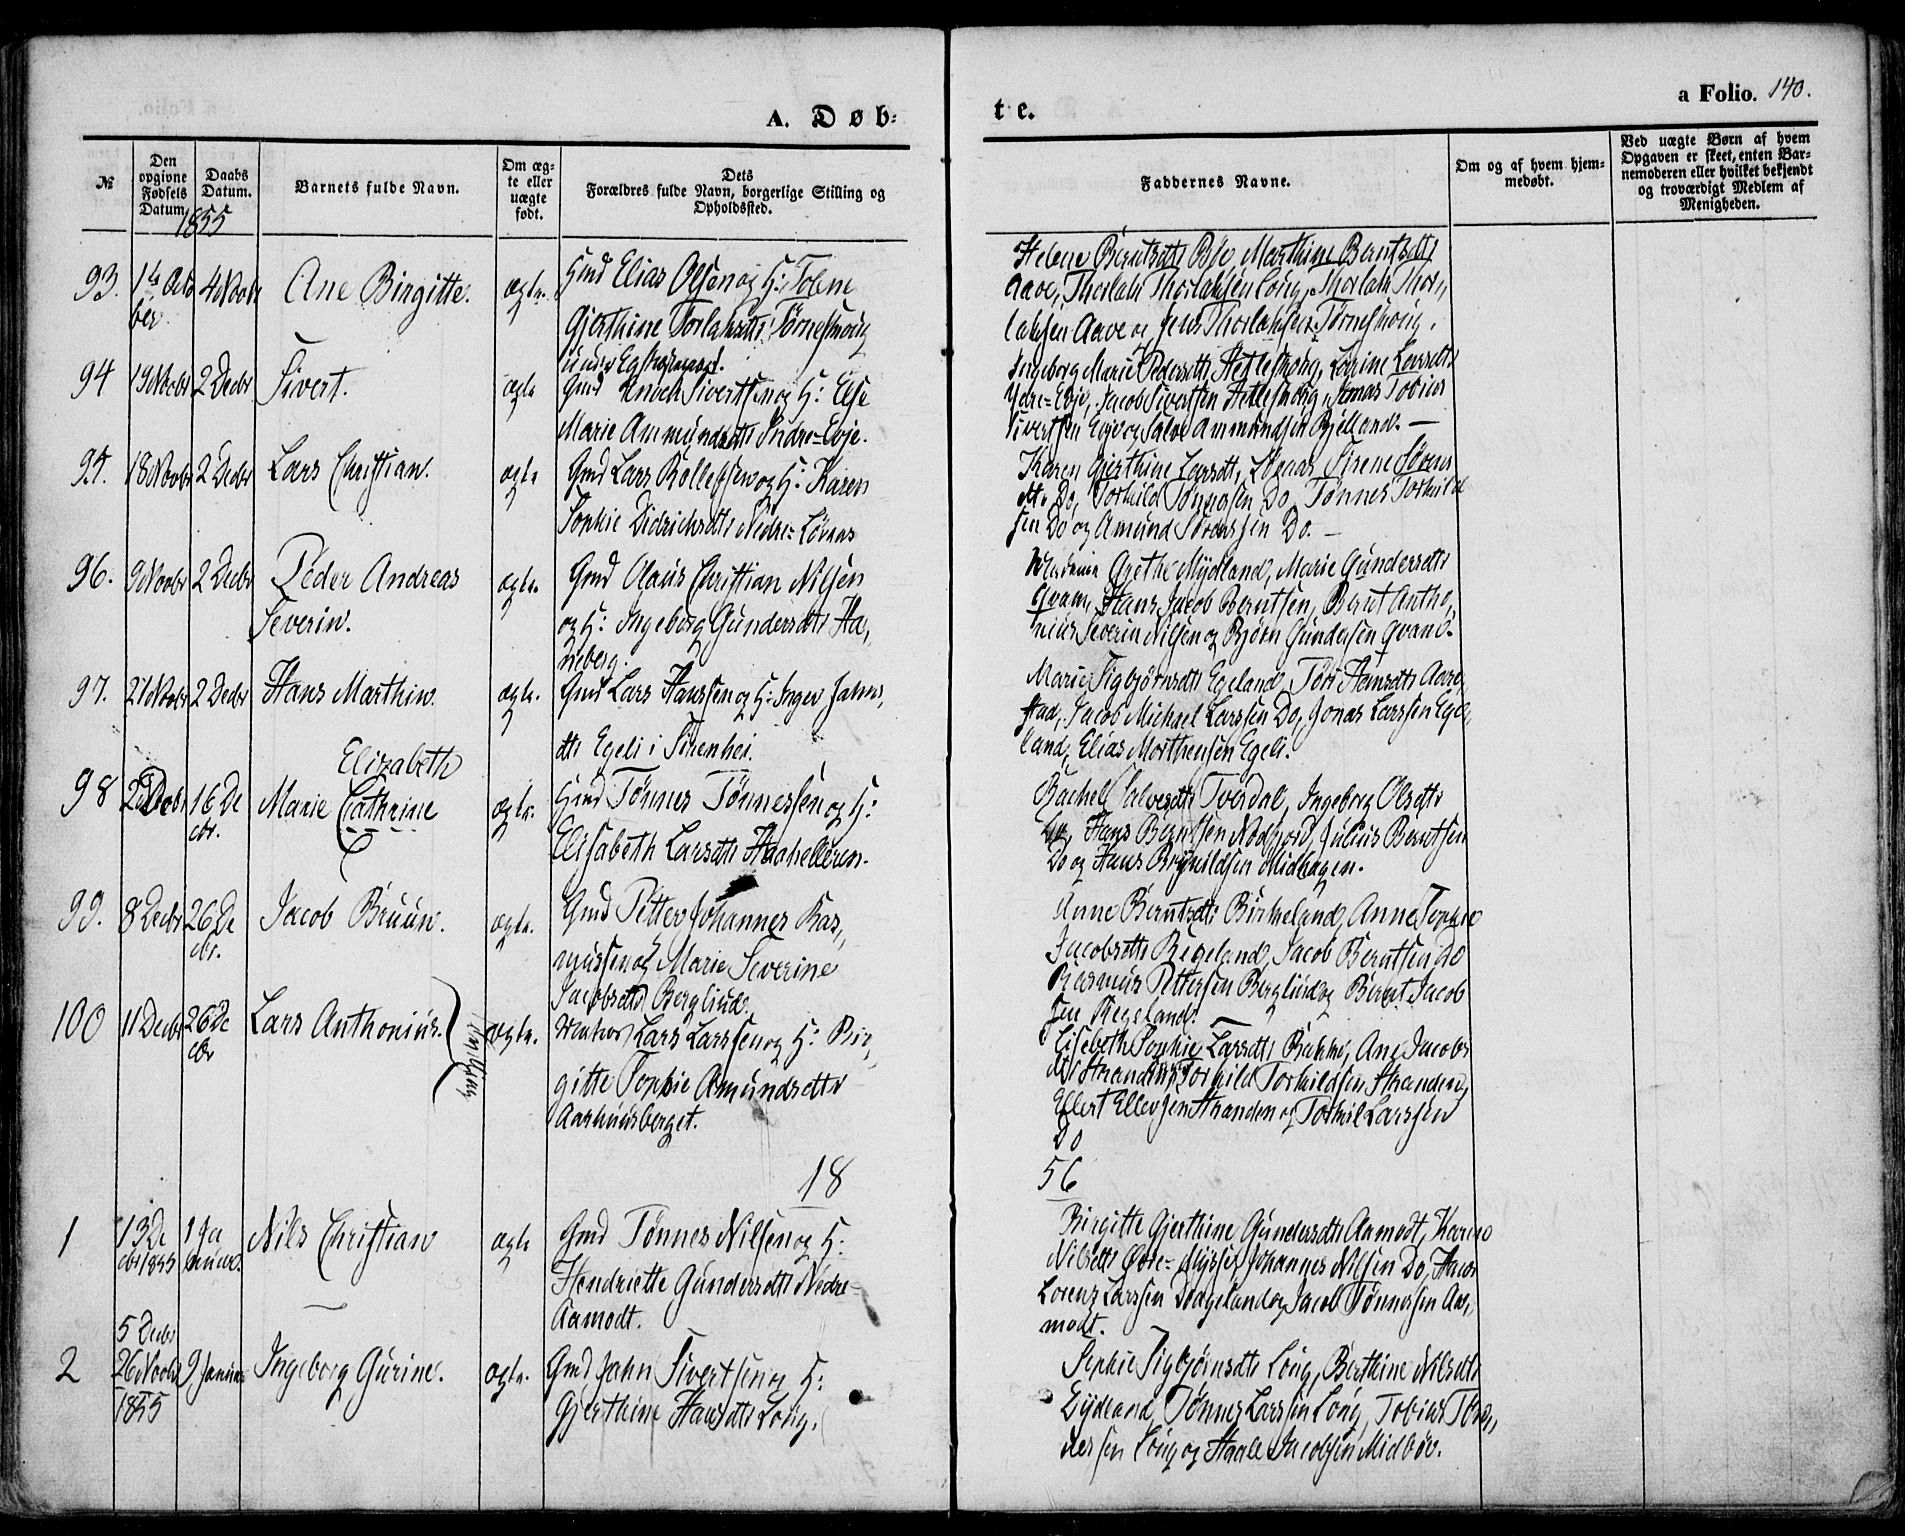 A. Døb-
te.
a Folio. 140.
№
Den opgivne Fødsels Datum.
Daabs Datum.
1855
Barnets fulde Navn.
Om ægte eller uægte født.
Dets
Forældres fulde Navn, borgerlige Stilling og
Opholdssted.
Faddernes Navne.
Om og af hvem hjem-
medøbt.
Ved uægte Børn af hvem
Opgaven er skeet, enten Bar-
nemoderen eller hvilket bekjendt
og troværdigt Medlem af
Menigheden.
93. 4 Novbr Ane Birgitte. ægte. Elias Olsen og H: Tolene
Gjerthine Torlaksdtr
under
Helene Berntsdtr Bøe, Marthine Berntsdtr
Aave, Thorlak Thorlaksen Loug, Thorlak Thor„
laksen Aave og Jens Thorlaksen
94 19 Novbr 2 Decbr Sivert. ægte Gmd Enoch Sivertsen og H: Else
Marie Ammundsdtr Indre-Evje.
Ingeborg Marie Pedersdtr Lovine Larsdtr
Ydre-Evje, Jacob Sivertsen Jonas Tobias
Sivertsen Evje og Salve Ammundsen Bjelland. —
95. 18 Novbr 2 Decbr Lars Christian. ægte Gmd Lars Rollefsen og H: Karen
Sophie Didrichsdtr Nedre-Løvaas
Karen Gjerthine Larsdtr Løvaas, Sirene Søvens
dtr Do, Torkild Tønnesen Do, Tønnes Torkild
sen Do og Amund Do. —
96. 9 Novbr 2 Decbr Peder Andreas ægte. Gmd Olaus Christian Nilsen
Severin. og H: Ingeborg Gundersdtr Ha„
neberg.
Grethe Mydland, Marie Gundersdtr
Qvam, Hans Jacob Berntsen, Bernt Antho„
nius Severin Nilsen og Bjørn Gundersen Qvam.
97. 21 Novbr 2 Decbr Hans Marthin. ægte. Gmd Lars Hanssen og H: Inger Jahns„
dtr Egeli i Sirenhei.
Marie Sigbjørnsdtr Egeland, Hansdtr Aare„
stad, Jacob Michael Larssen Do, Jonas Larssen Ege„
land, Elias Morthensen Egeli.
Elizabeth
98 16 De Marie Cathrine ægte. Tønnes Tønnessen og H:
cbr. Elisabeth Larsdtr Haahelleren.
Rachel Salvesdtr Tverdal, Ingeborg Olsdtr
Do, Hans Berntsen Nodfjord, Julius Berntsen
Do og Hans Brynildsen Midhagen.
99. 8 Decbr 26 De Jacob Bruun. ægte. Gmd Petter Johannes Ras„
cbr. mussen og Marie Severine
Jacobsdtr Berglind.
Anne Berntsdtr Birkeland, Anne Sophie
Jacobsdtr Regeland, Jacob Berntsen Do
Rasmus Pettersen Berglind og Bernt Jacob
sen Regeland.
100 11 Decbr 26 De Lars Anthonius. ægte. Lars Larssen og H: Bir„
cbr gitte Sophie Amundsdtr
Aarhuusberget.
Elisebeth Sophie Larsdtr Bakke, Ane Jacobs
dtr Stranden, Torkild Torkildsen Stranden,
Ellert Ellevsen Stranden og Torkil Larssen
Do
18
56
1 13 De 1 Ja Nils Christian ægte Gmd Tønnes Nilsen og H:
cbr 1855 nuar. Hendriette Gundersdtr Nedre-
Aamodt.
Birgitte Gjerthine Gundersdtr Aamodt, Karine
Nilsdtr Øvre- Johannes Nilsen Do, Hans
Lorenz Larssen og Jacob Tønnesen Aa„
modt.
5 Decbr
2 26 Novbr 9 Januar Ingeborg Gurine. ægte. Gmd Jahn Sivertsen og H:
1855 Gjerthine Hansdtr Loug.
Sophie Sigbjørnsdtr Loug, Berthine Nilsdtr
Eydeland, Tønnes Larssen Loug, Tobias Tøn„
nessen Loug og Staale Jacobsen Midbøe.